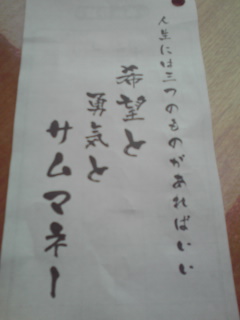 人生には三つのものがあればいい
希望と
勇気と
サムマネー